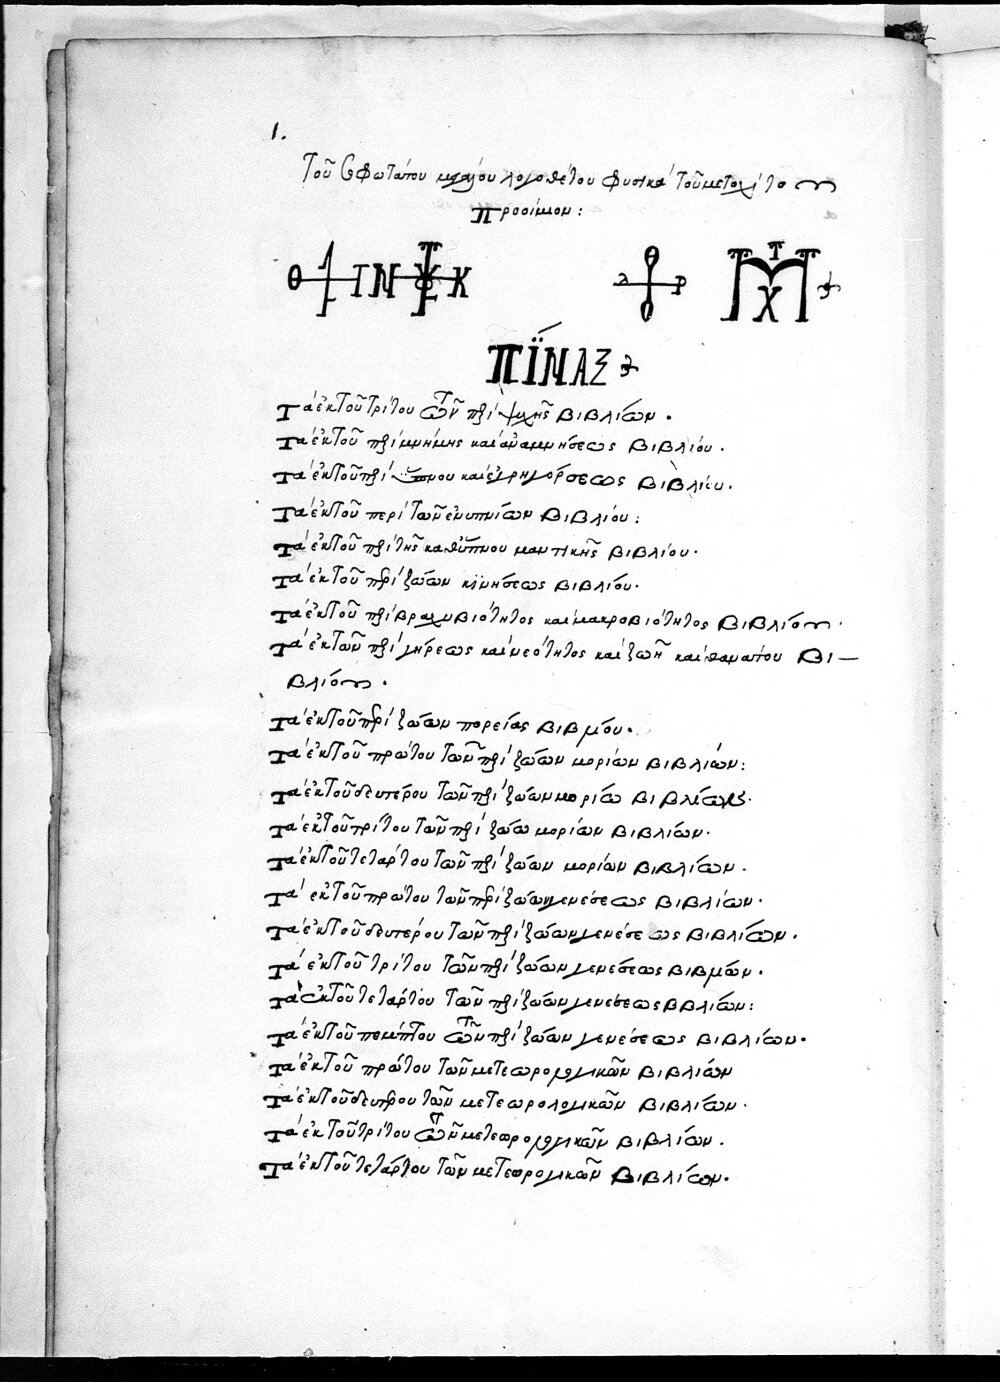 1.
Τοῦ Σοφωτάτου μεγάλου λογοθέτου φυσικὰ τοῦ μετοχίτου
Προοίμιον:
ΠΙΝΑΞ
Τὰ ἐκ τοῦ τρίτου τῶν περὶ ψυχῆς βιβλίων.
Τὰ ἐκ τοῦ περὶ μνήμης καὶ ἀναμνήσεως βιβλίου.
Τὰ ἐκ τοῦ περὶ ὕπνου καὶ ἐγρηγόρσεως βιβλίου.
Τὰ ἐκ τοῦ περὶ τῶν ἐνυπνίων βιβλίου:
Τὰ ἐκ τοῦ περὶ τῆς καθ' ὕπνου μαντικῆς βιβλίου.
Τὰ ἐκ τοῦ περὶ ζώων κινήσεως βιβλίου.
Τὰ ἐκ τοῦ περὶ βραχυβιότητος καὶ μακροβιότητος βιβλίου.
Τὰ ἐκ τῶν περὶ γήρεως καὶ νεότητος καὶ ζωῆ καὶ θανάτου βι–
βλίου.
Τὰ ἐκ τοῦ περὶ ζώων πορείας βιβλίου.
Τὰ ἐκ τοῦ πρώτου τῶν περὶ ζώων μορίων βιβλίων:
Τὰ ἐκ τοῦ δευτέρου τῶν περὶ ζώων μορίων βιβλίων.
Τὰ ἐκ τοῦ τρίτου τῶν περὶ ζώων μορίων βιβλίων.
Τὰ ἐκ τοῦ τετάρτου τῶν περὶ ζώων μορίων βιβλίων.
Τὰ ἐκ τοῦ πρώτου τῶν περὶ ζώων γενέσεως βιβλίων.
Τὰ ἐκ τοῦ δευτέρου τῶν περὶ ζώων γενέσεως βιβλίων.
Τὰ ἐκ τοῦ τρίτου τῶν περὶ ζώων γενέσεως βιβλίων.
Τὰ ἐκ τοῦ τετάρτου τῶν περὶ ζώων γενέσεως βιβλίων:
Τὰ ἐκ τοῦ πέμπτου τῶν περὶ ζώων γενέσεως βιβλίων.
Τὰ ἐκ τοῦ πρώτου τῶν μετεωρολογικῶν βιβλίων
Τὰ ἐκ τοῦ δευτέρου τῶν μετεωρολογικῶν βιβλίων.
Τὰ ἐκ τοῦ τρίτου τῶν μετεωρολογικῶν βιβλίων.
Τὰ ἐκ τοῦ τετάρτου τῶν μετεωρολογικῶν βιβλίων.